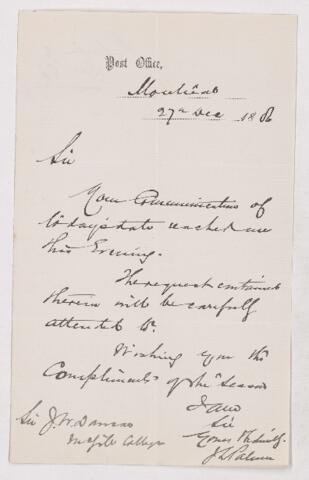 Post Office,
Montreal
27th Dec 1886
Sir
Your Communication of
to day's date reached me
this Evening.
The request contained
therein will be carefully
attended to.
Wishing you the
Compliments of the Season
I am
Sir
Yours
J Palmer
Sir J. W. Dawson
McGill College